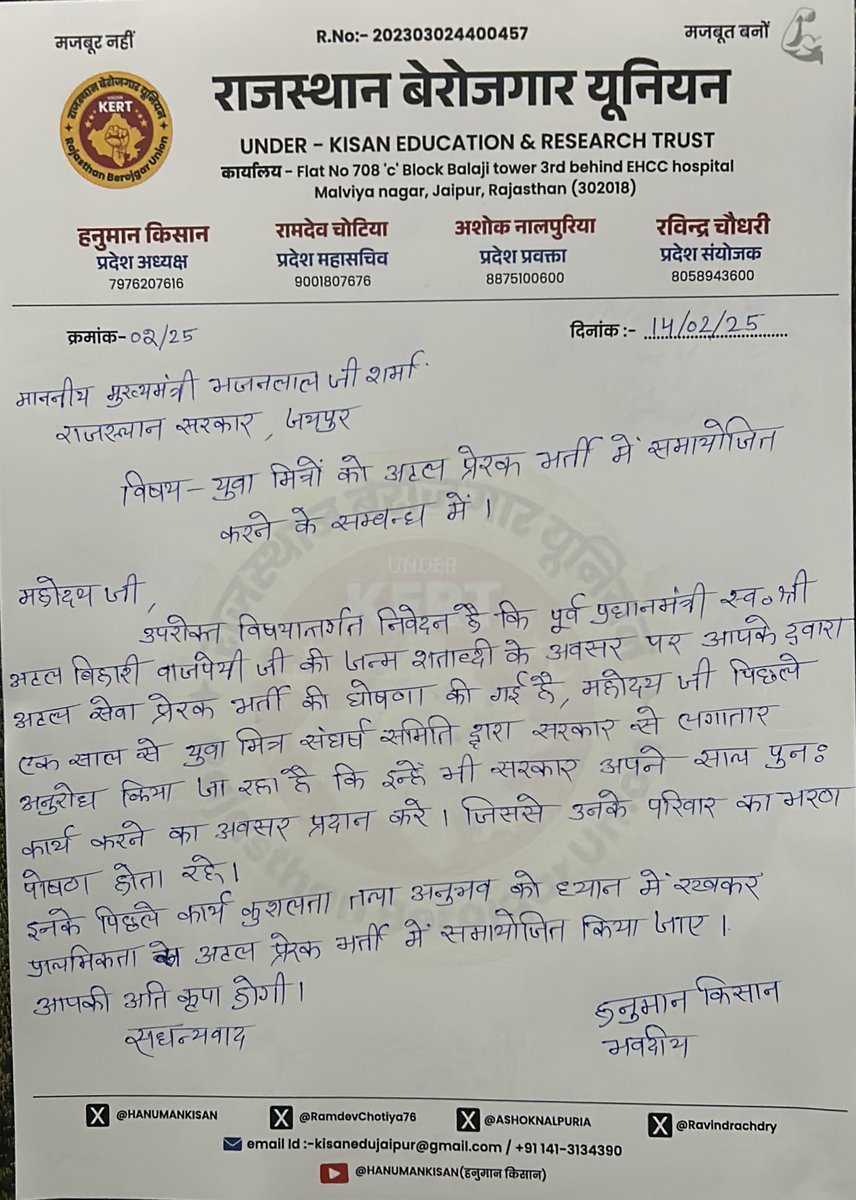 मजबूर नहीं
R.No:- 202303024400457
मजबूत बनों
राजस्थान बेरोजगार यूनियन
KERT
Rajasthan Berojgar Union
राजस्थान बेरोजगार यूनियन
UNDER - KISAN EDUCATION & RESEARCH TRUST
कार्यालय - Flat No 708 'c' Block Balaji tower 3rd behind EHCC hospital
Malviya nagar, Jaipur, Rajasthan (302018)
हनुमान किसान
प्रदेश अध्यक्ष
7976207616
रामदेव चोटिया
प्रदेश महासचिव
9001807676
अशोक नालपुरिया
प्रदेश प्रवक्ता
8875100600
रविन्द्र चौधरी
प्रदेश संयोजक
8058943600
क्रमांक-02/25
दिनांक :- 14/02/25
माननीय मुख्यमंत्री भजनलाल जी शर्मा
राजस्थान सरकार, जयपुर
विषय - युवा मित्रों को अटल प्रेरक भर्ती में समायोजित
करने के सम्बन्ध में।
महोदय जी,
उपरोक्त विषयान्तर्गत निवेदन है कि पूर्व प्रधानमंत्री स्व० श्री
अटल बिहारी वाजपेयी जी की जन्म शताब्दी के अवसर पर आपके द्वारा
अटल सेवा प्रेरक भर्ती की घोषणा की गई है, महोदय जी पिछले
एक साल से युवा मित्र संघर्ष समिति द्वारा सरकार से लगातार
अनुरोध किया जा रहा है कि इन्हें भी सरकार अपने साल पुनः
कार्य करने का अवसर प्रदान करे। जिससे उनके परिवार का भरण
पोषण होता रहे।
इनके पिछले कार्य कुशलता तथा अनुभव को ध्यान में रखकर
प्राथमिकता से अटल प्रेरक भर्ती में समायोजित किया जाए।
आपकी अति कृपा होगी।
सधन्यवाद
हनुमान किसान
भवदीय
@HANUMANKISAN
@RamdevChotiya76
@ASHOKNALPURIA
@Ravindrachdry
email Id :-kisanedujaipur@gmail.com / +91 141-3134390
@HANUMANKISAN(हनुमान किसान)